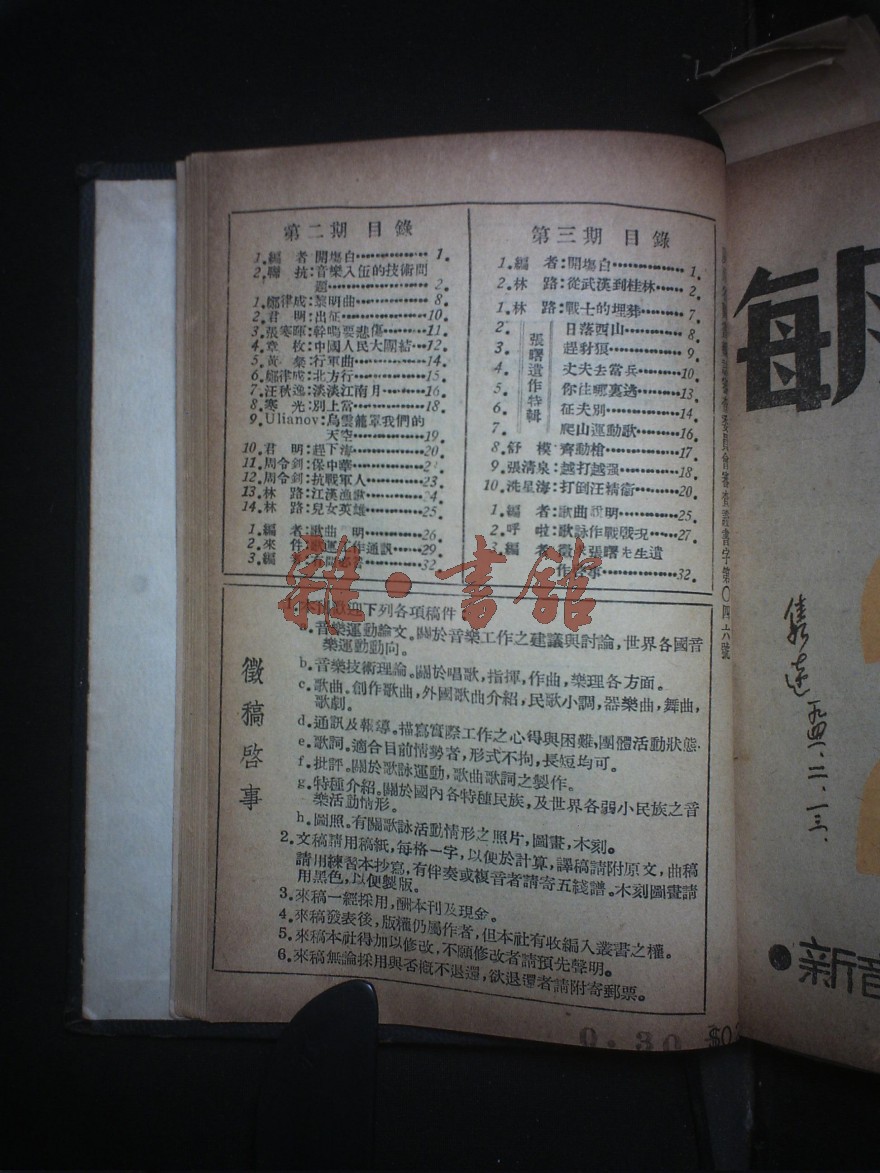 第二期 目錄
1.編 者:開塲白……………1.
2.聯 抗:音樂入伍的技術問
題……………2.
1.鄭律成:黎明曲……………8.
2.君 明:出征……………10.
3.張寒暉:幹嗎要悲傷……………11.
4.章 枚:中國人民大團結…12.
5.黃 粲:行軍曲……………14.
6.鄭律成:北方行……………15.
7.汪秋逸:淡淡江南月………16.
8.寒 光:別上當……………18.
9.Ulianov:烏雲籠罩我們的
天空……………19.
10.君 明:趕下海……………20.
11.周令釗:保中華……………2
12.周令釗:抗戰軍人…………23.
13.林 路:江漢漁歌…………4.
14.林 路:兒女英雄…………25.
1.編 者:歌曲 明…………26.
2.來 件:歌運工作通訊……29.
3.編 …………32.
第三期 目錄
1.編 者:開塲白……………1.
2.林 路:從武漢到桂林……2.
1.林 路:戰士的埋葬………7.
張曙遺作特輯
2. 日落西山……………8.
3. 趕豺狼……………9.
4. 丈夫去當兵…………10.
5. 你往哪裏逃…………13.
6. 征夫別……………14.
7. 爬山運動歌…………16.
8.舒 模:齊動槍……………17.
9.張清泉:越打越强…………18.
10.洗星海:打倒汪精衛………20.
1.編 者:歌曲說明…………25.
2.呼 啦:歌詠作戰戰況……27.
3.編 者:徵求張曙先生遺
作啓事……………32.
雜·書館
徵稿啓事
1.本刊歡迎下列各項稿件:
a.音樂運動論文。關於音樂工作之建議與討論,世界各國音
樂運動動向。
b.音樂技術理論。關於唱歌,指揮,作曲,樂理各方面。
c.歌曲。創作歌曲,外國歌曲介紹,民歌小調,器樂曲,舞曲,
歌劇。
d.通訊及報導。描寫實際工作之心得與困難,團體活動狀態.
e.歌詞。適合目前情勢者,形式不拘,長短均可。
f.批評。關於歌詠運動,歌曲歌詞之製作。
g.特種介紹。關於國內各特種民族,及世界各弱小民族之音
樂活動情形。
h.圖照。有關歌詠活動情形之照片,圖畫,木刻。
2.文稿請用稿紙,每格一字,以便於計算,譯稿請附原文,曲稿
請用練習本抄寫,有伴奏或複音者請寄五綫譜。木刻圖畫請
用黑色,以便製版。
3.來稿一經採用,酬本刊及現金。
4.來稿發表後,版權仍屬作者,但本社有收編入叢書之權。
5.來稿本社得加以修改,不願修改者請預先聲明。
6.來稿無論採用與否概不退還,欲退還者請附寄郵票。
0.30
$0.
審查證書字第〇四六號
一九四一.二.一三.
●新音